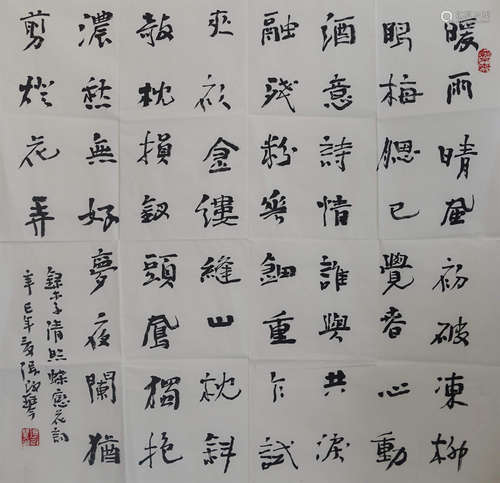 暖雨晴風初破凍柳
眼梅腮已覺春心動
酒意詩情誰與共淚
融殘粉花鈿重乍試
夾衫金縷縫山枕斜
敧枕損釵頭鳳獨抱
濃愁無好夢夜闌猶
剪燈花弄
錄李清照蝶戀花詞
辛巳年